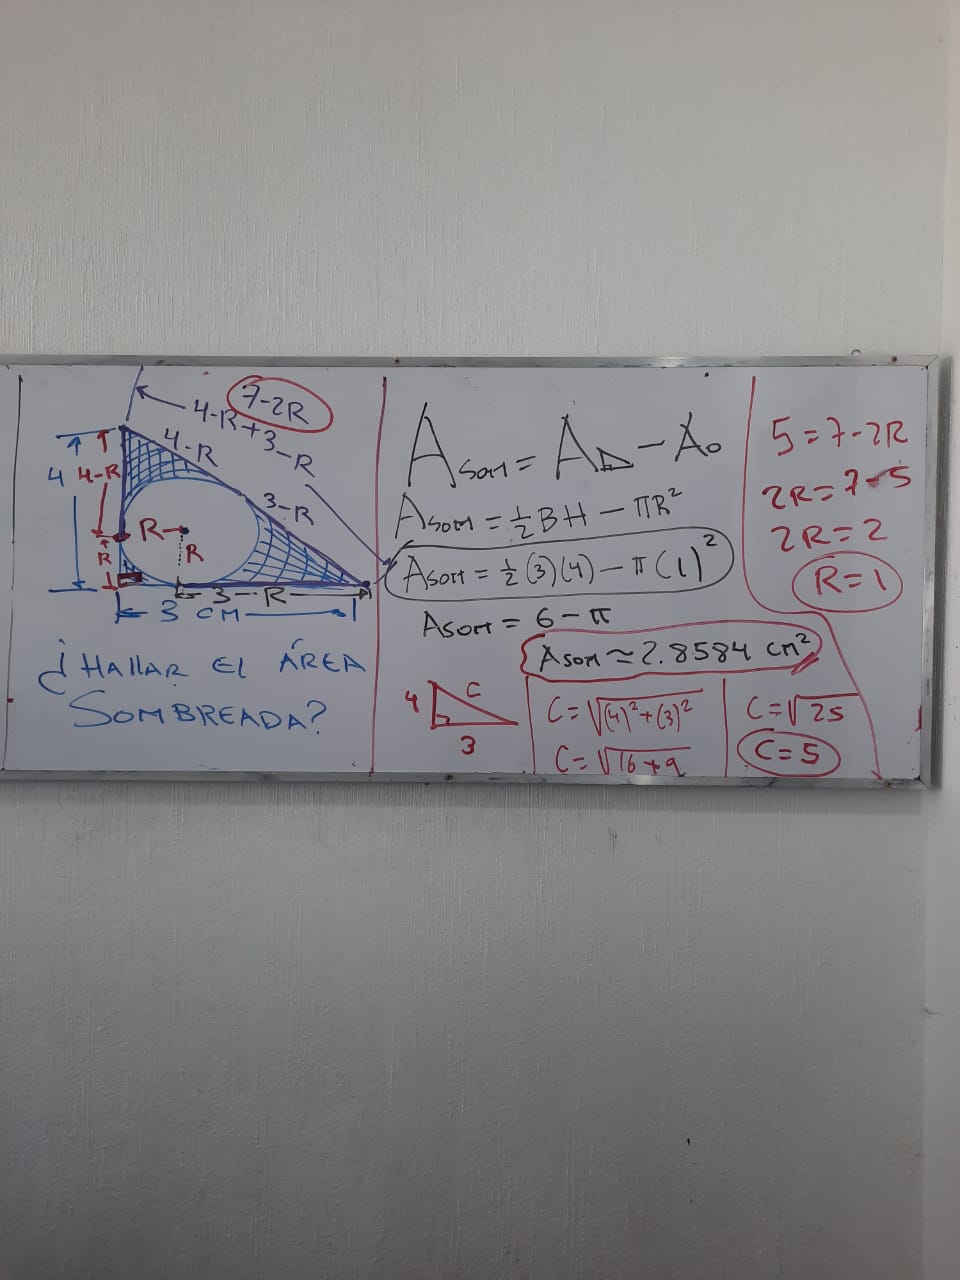 7-2R
4-R+3-R
4-R
3-R
4
4-R
R
R
R
3-R
3 CM
¿HAllAR EL ÁREA
SOMBREADA?
Asom = A◺ - Ao
Asom = ½BH - πR²
Asom = ½(3)(4) - π(1)²
Asom = 6 - π
Asom ≈ 2.8584 cm²
4
C
3
C=√(4)²+(3)²
C=√16+9
C=√25
C=5
5=7-2R
2R=7-5
2R=2
R=1